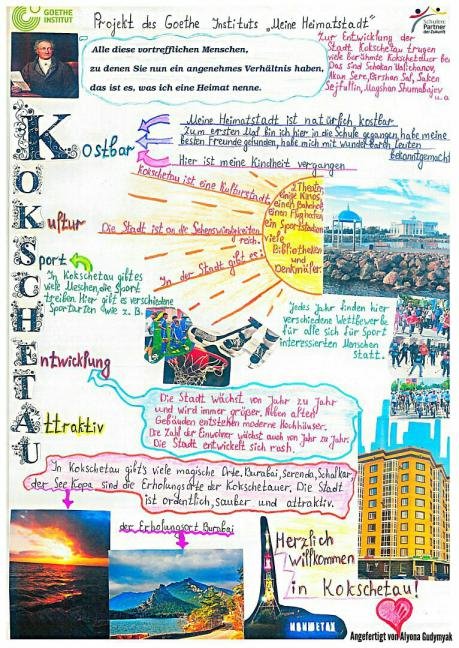 GOETHE
INSTITUT
Projekt des Goethe Instituts „Meine Heimatstadt"
Schulen:
Partner
der Zukunft
Alle diese vortrefflichen Menschen,
zu denen Sie nun ein angenehmes Verhältnis haben,
das ist es, was ich eine Heimat nenne.
Zur Entwicklung der
Stadt Kokschetau trugen
viele berühmte Kokschetauer bei
Das sind Schokan Ualichanov,
Akan Sere, Birshan Sal, Saken
Sejfullin, Magshan Shumabajev
u.a
Kostbar
Meine Heimatstadt ist natürlich kostbar
Zum ersten Mal bin ich hier in die Schule gegangen, habe meine
besten Freunde gefunden, habe mich mit wunderbaren Leuten
bekanntgemacht
Hier ist meine Kindheit vergangen
O
Kultur
Kokschetau ist eine Kulturstadt
Die Stadt ist an die Sehenswürdigkeiten
reich.
In der Stadt gibt es:
2 Theater,
einige Kinos,
einen Bahnhof,
einen Flughafen,
ein Sportstadion,
viele
Bibliotheken
und
Denkmäler.
Sport
In Kokschetau gibt es
viele Meschen, die Sport
treiben. Hier gibt es verschiedene
Sportarten wie z. B.
Jedes Jahr finden hier
verschiedene Wettbewerbe
für alle sich für Sport
interessierten Menschen
statt.
C
H
Entwicklung
Die Stadt wächst von Jahr zu Jahr
und wird immer größer. Neben alten
Gebäuden entstehen moderne Hochhäuser.
Die Zahl der Einwohner wächst auch von Jahr zu Jahr.
Die Stadt entwickelt sich rash.
T
Attraktiv
U
In Kokschetau gibt's viele magische Orte, Burabai, Serenda, Schalkar,
der See Kopa sind die Erholungsorte der Kokschetauer. Die Stadt
ist ordentlich, sauber und attraktiv.
der Erholungsort Burabai
Herzlich
willkommen
in Kokschetau!
Angefertigt von Alyona Gudymyak